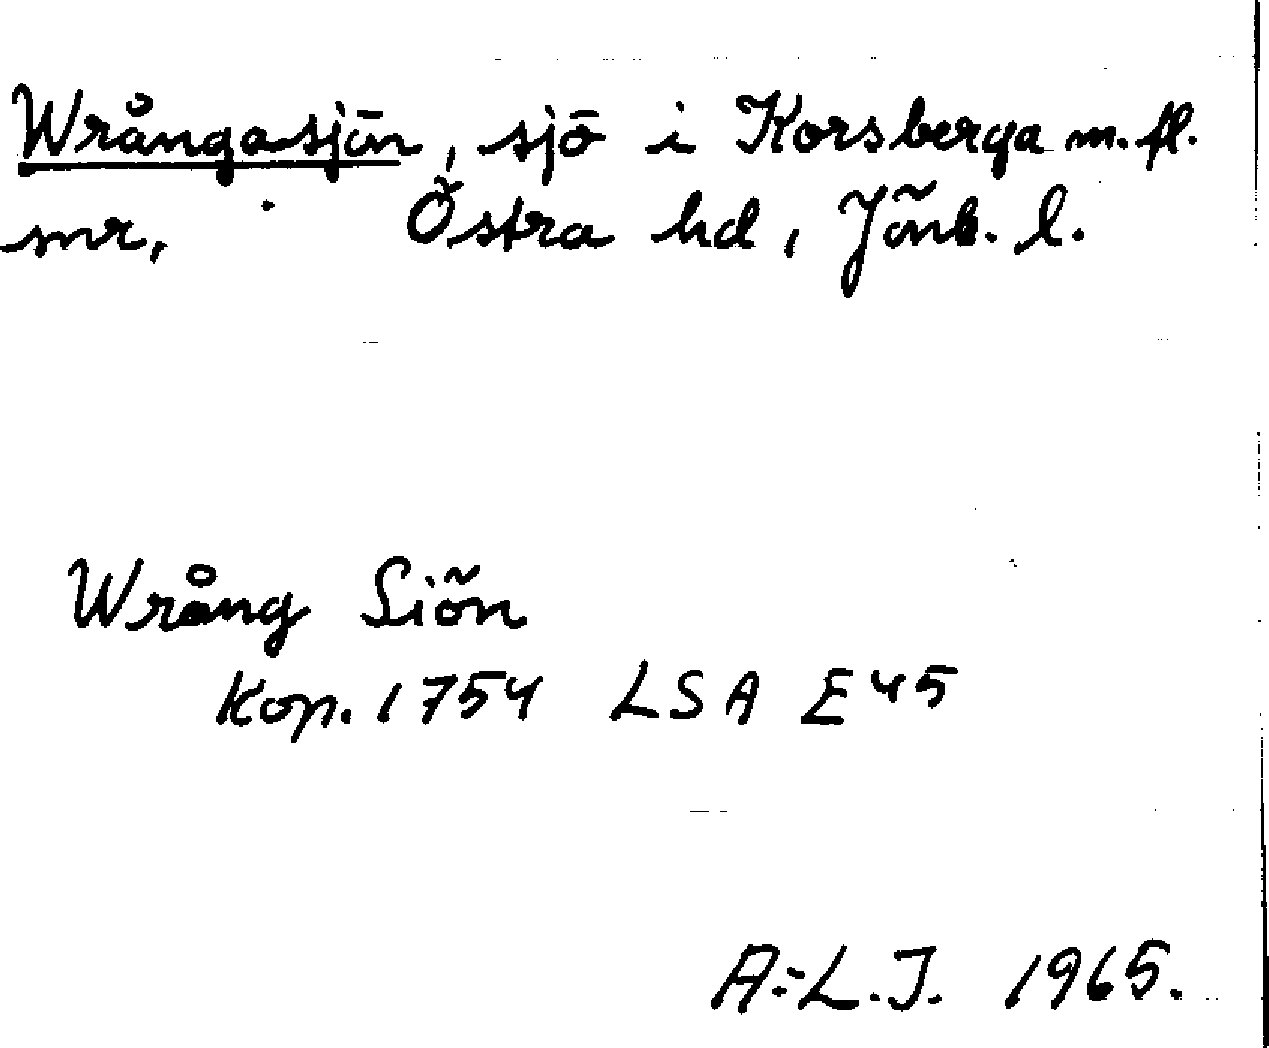 Wrångasjön, sjö i Korsberga m.fl.
snr, Östra hd, Jönk. l.
Wrång Siön
Kop. 1754 LSA E45
A.-L.J. 1965.